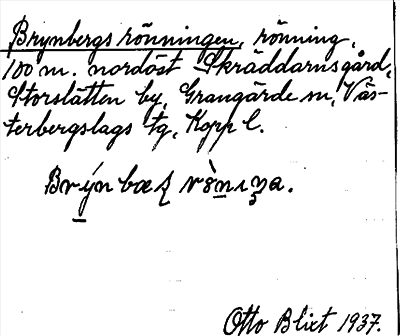 Brynbergs rönningen, rönning,
100 m. nordöst Skräddarns gård,
Storslätten by, Grangärde sn, Väs-
terbergslags tg, Kopp l.
Otto Blixt 1937.